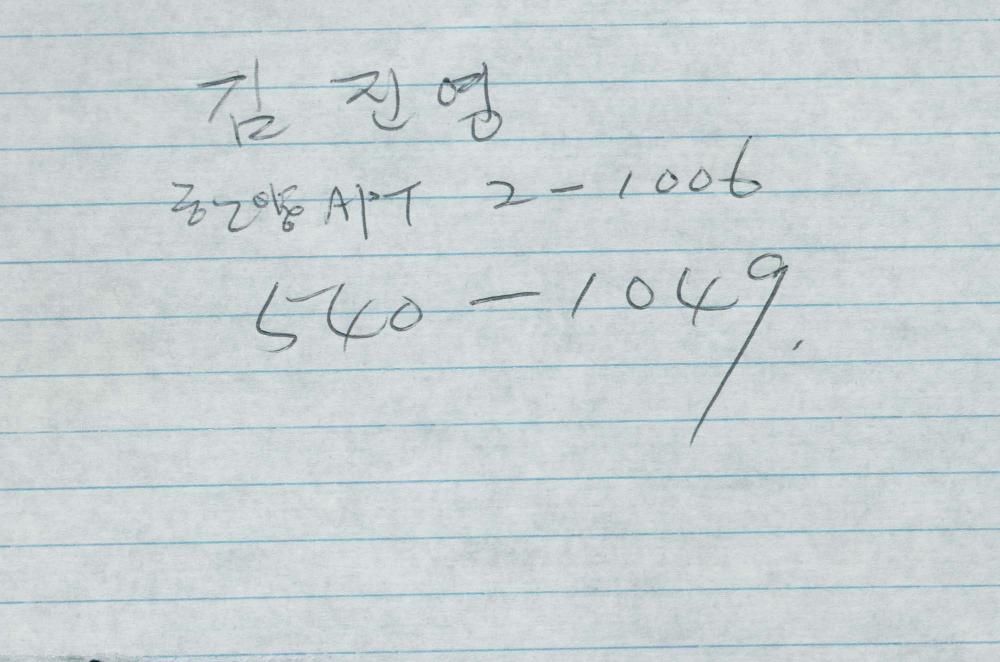 김 진 영
APT 2-1006
540-1049.